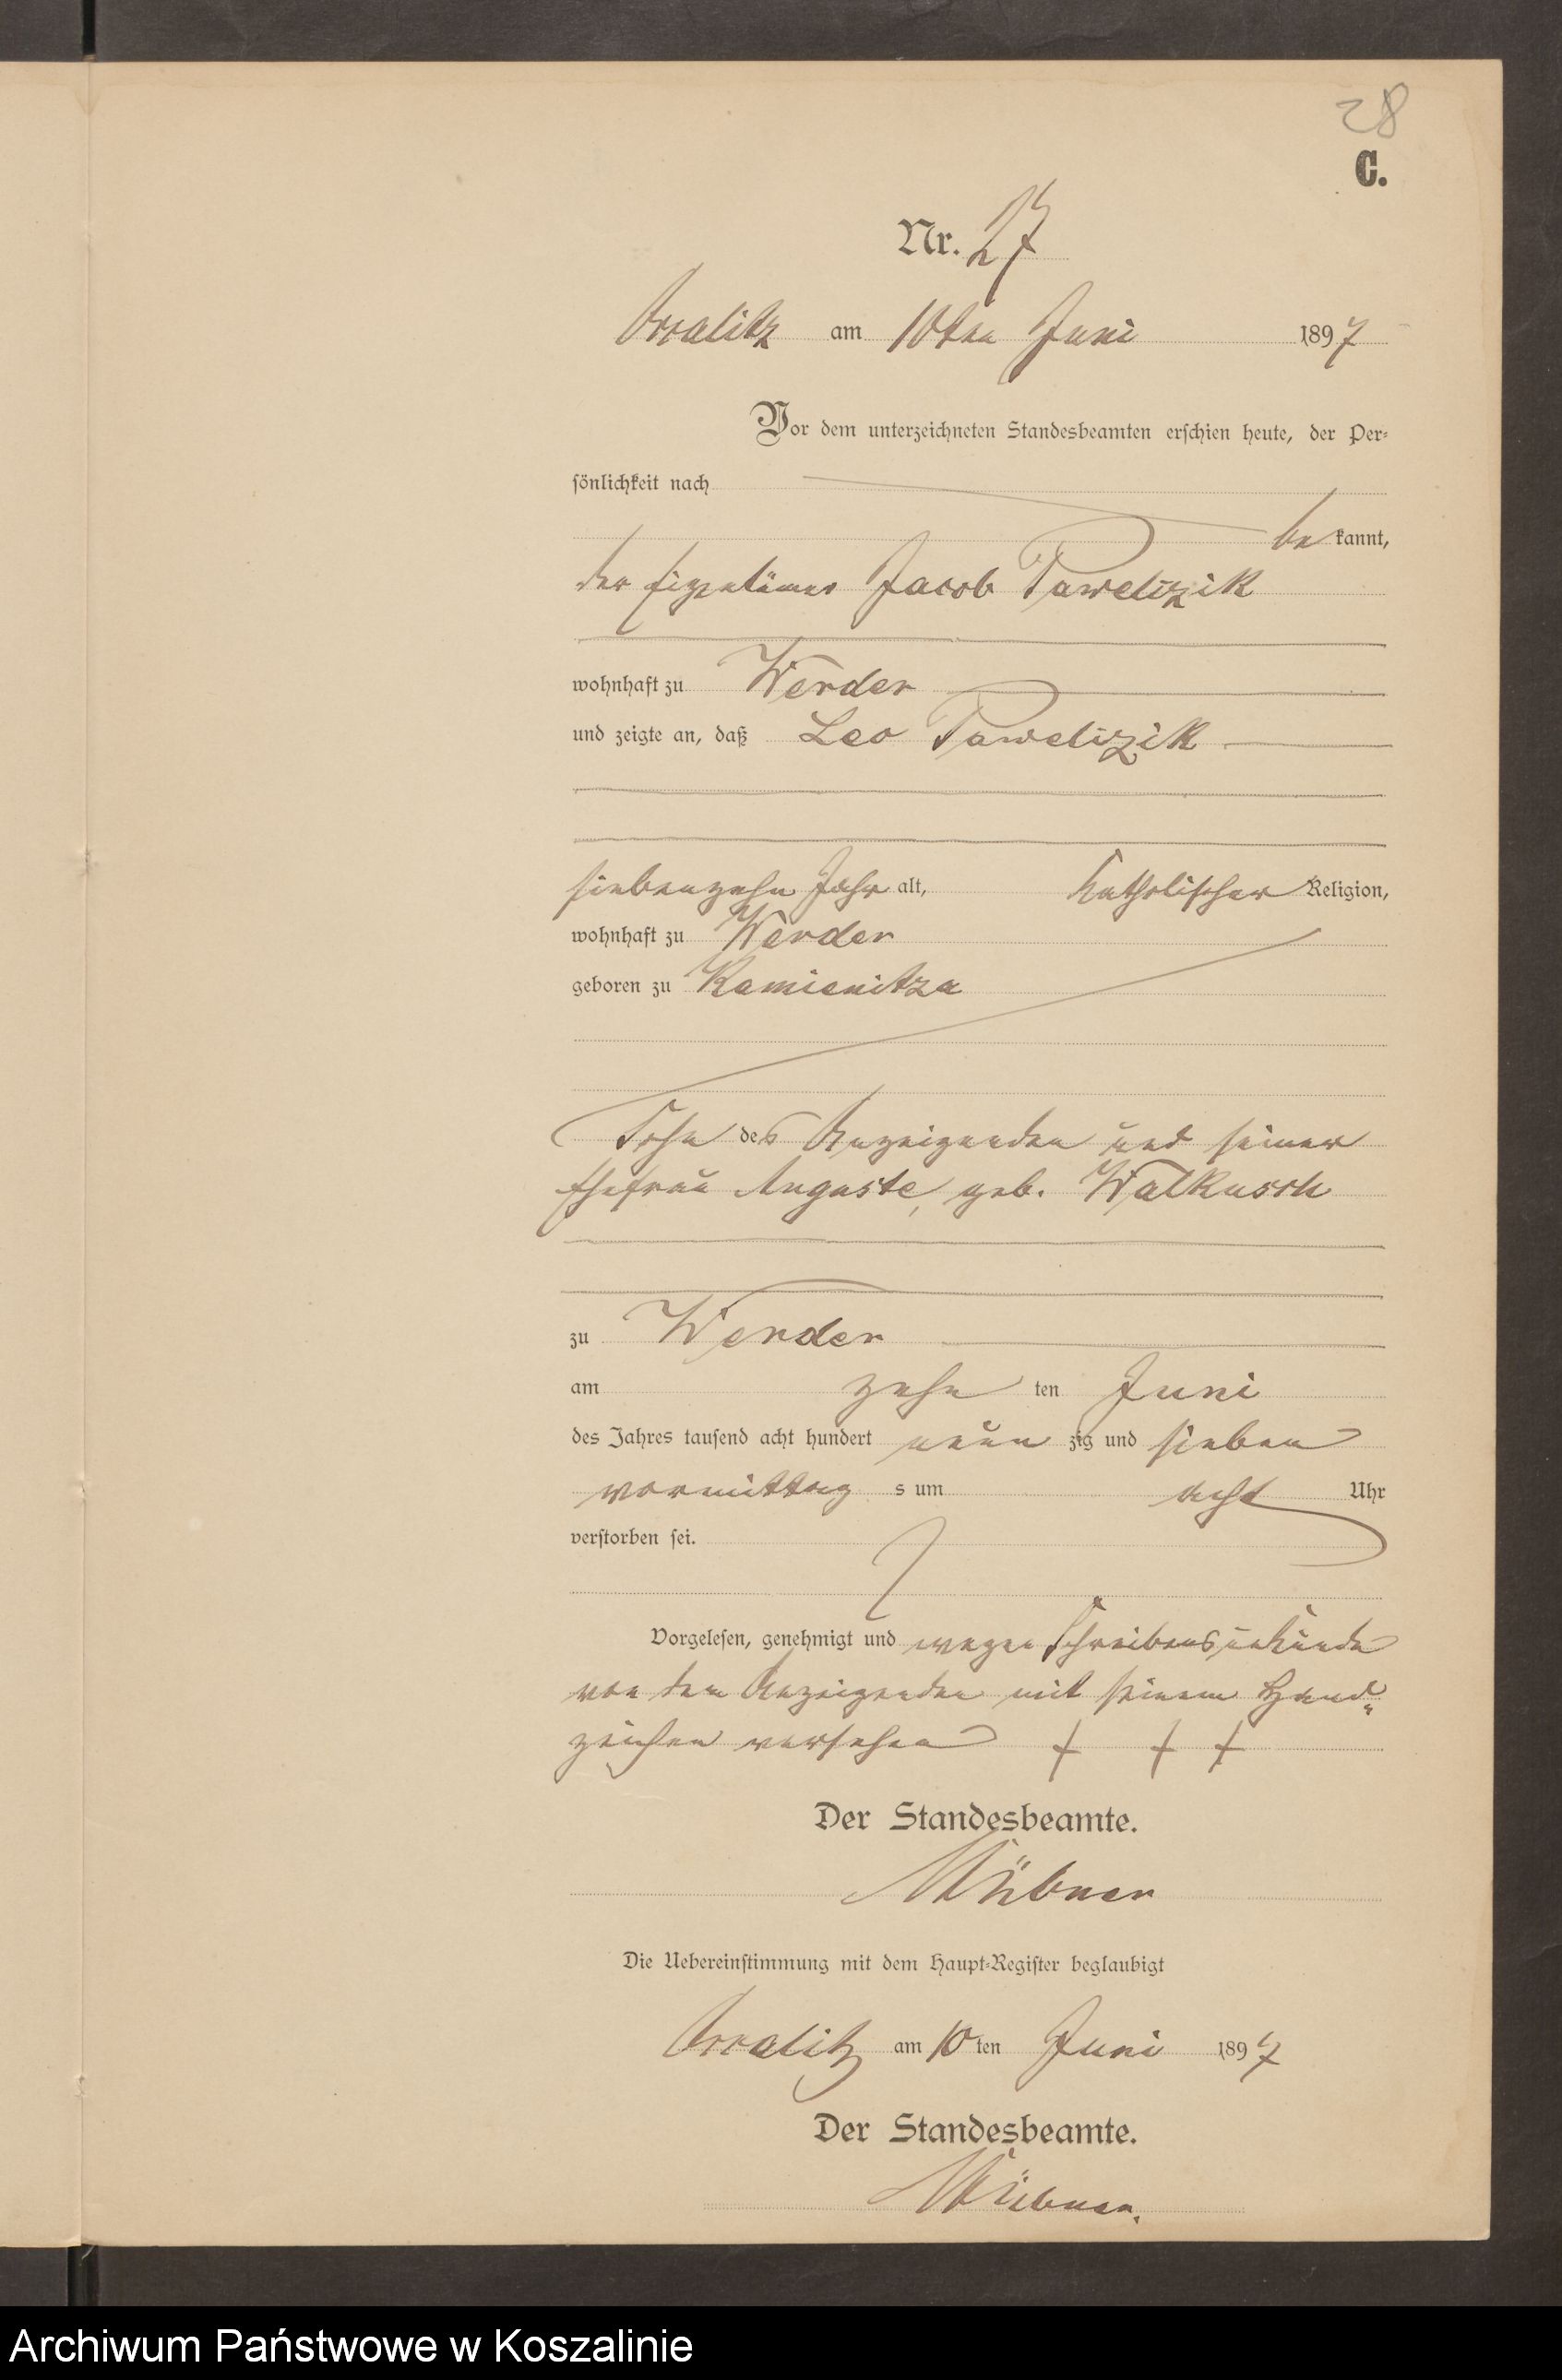 28
C.
Nr. 27
am 10ten Juni 1897
Vor dem unterzeichneten Standesbeamten erschien heute, der Per-
sönlichkeit nach
be kannt,
der Eigentümer Jacob Pawelizik
wohnhaft zu Werder
und zeigte an, daß Leo Pawelizik
siebenzehn Jahr alt, katholischer Religion,
wohnhaft zu Werder
geboren zu Kamienitza
Sohn des Anzeigenden und seiner
Ehefrau Auguste, geb. Walkusch
zu Werder
am zehn ten Juni
des Jahres tausend acht hundert neun zig und sieben
vormittag s um acht Uhr
verstorben sei.
Vorgelesen, genehmigt und wegen Schreibensunkunde
von dem Anzeigenden mit seinem Hand-
zeichen versehen + + +
Der Standesbeamte.
Die Uebereinstimmung mit dem Haupt-Register beglaubigt
am 10 ten Juni 1897
Der Standesbeamte.
Archiwum Państwowe w Koszalinie